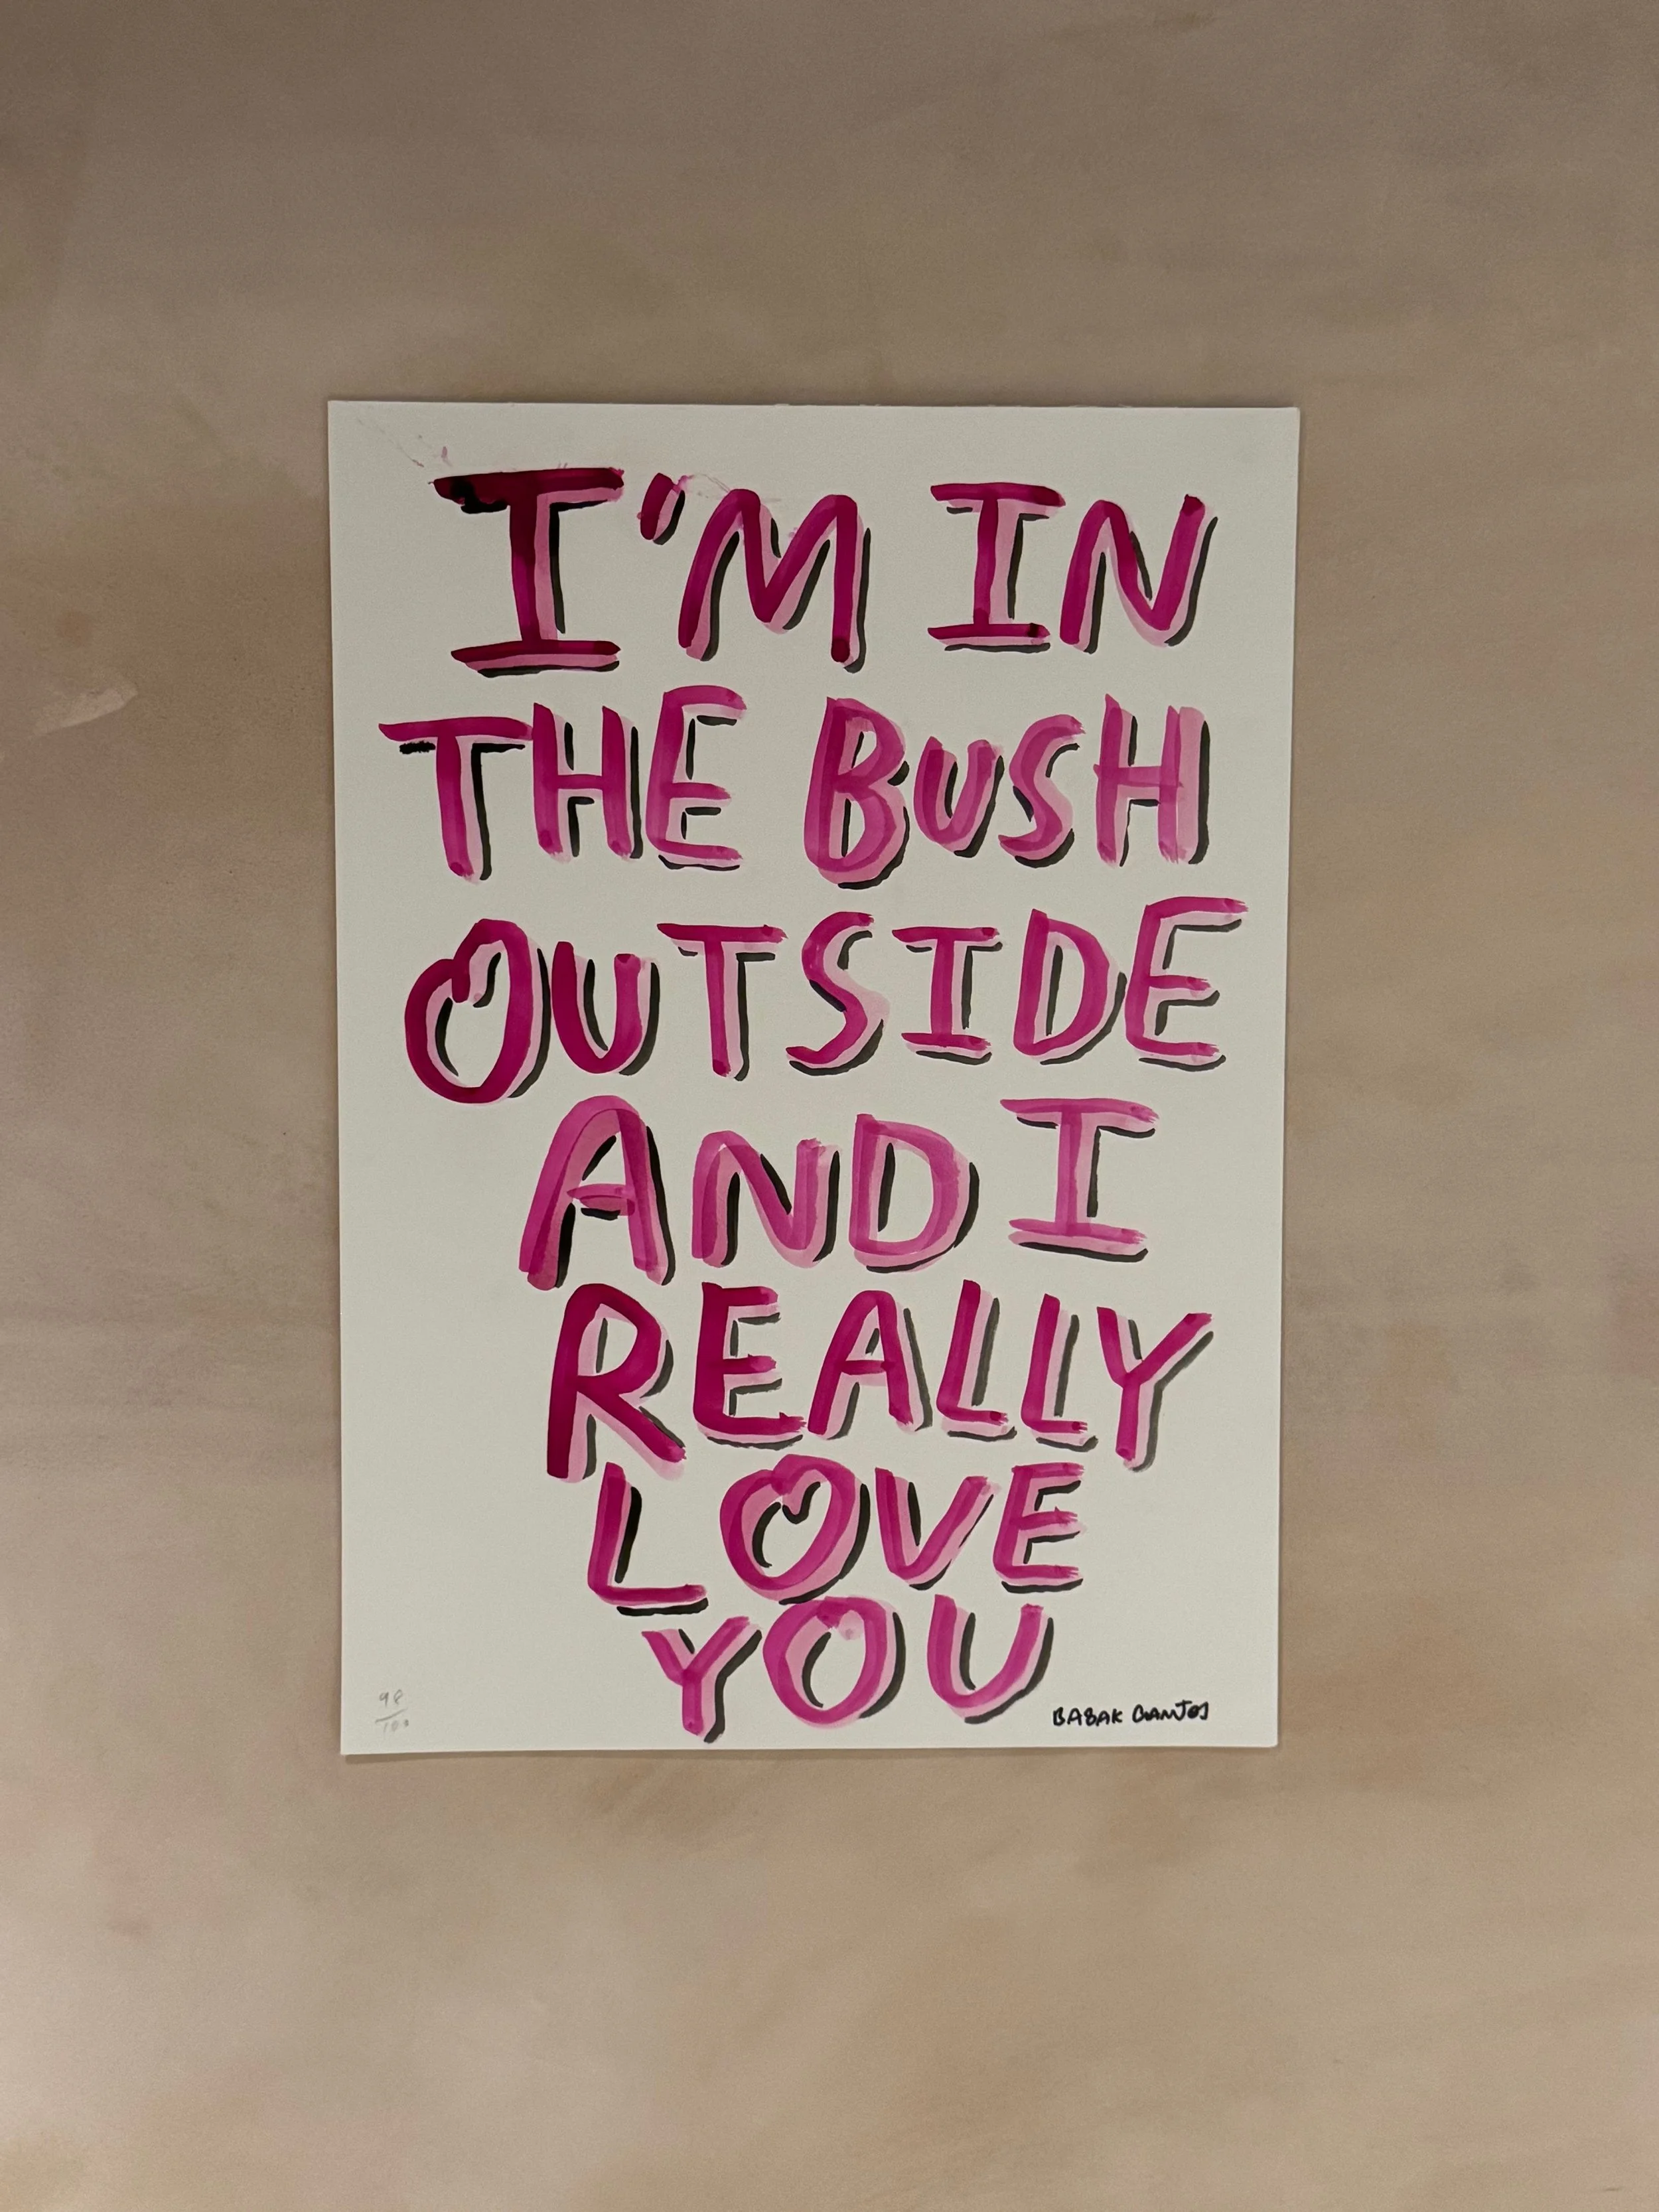 I'M IN
THE BUSH
OUTSIDE
AND I
REALLY
LOVE
YOU
98/100
BABAK GANJEI